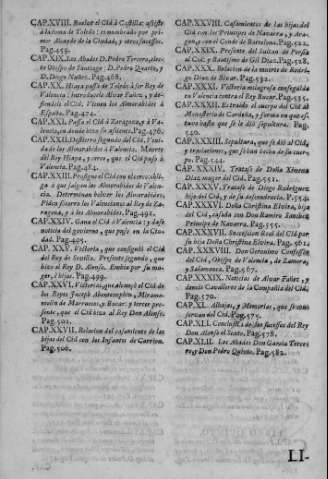 CAP. XVIII. Buelve el Cid à Castilla; assiste
à la toma de Toledo: es nombrado por pri-
mer Alcayde de la Ciudad, y otros sucessos.
Pag. 459.
CAP. XIX. Los Abades D. Pedro Tercero, elec-
to Obispo de Santiago: D. Pedro Quarto, y
D. Diego Nuñez. Pag. 468.
CAP. XX. Hiaya passa de Toledo à ser Rey de
Valencia:
España. Pag. 474.
CAP. XXI. Passa el Cid à Zaragoza, y à Va-
lencia, en donde hizo su assiento. Pag. 476.
CAP. XXII. Destierro segundo del Cid. Veni-
da de los Almoravides à Valencia. Muerte
del Rey Hiaya, y cerco, que el Cid puso à
Valencia. Pag. 484.
CAP. XXIII. Prosigue el Cid
à que salgan los Almoravides de Valen-
cia. Determinan bolver los Almoravides:
Piden socorro los Valencianos al Rey de Za-
ragoza, y à los Almoravides. Pag. 491.
CAP. XXIV. Gana el Cid à Valencia: y dase
noticia del govierno, que puso en la Ciu-
dad. Pag. 495.
CAP. XXV. Victoria, que consiguiò el Cid
del Rey de Sevilla. Presente segundo, que
hizo al Rey D. Alonso. Embia por su mu-
ger, è hijas. Pag. 499.
CAP. XXVI. Victoria, que alcanzò el Cid de
los Reyes Joseph Abentexephin, Miramo-
molin de Marruecos, y Bucar: y tercer pre-
sente, que el Cid hizo al Rey Don Alonso.
Pag. 502.
CAP. XXVII. Relacion del casamiento de las
hijas del Cid con los Infantes de Carrion.
Pag. 506.
CAP. XXVIII. Casamientos de las hijas del
Cid con los Principes de Navarra, y Ara-
gon, y con el Conde de Barcelona. Pag. 522.
CAP. XXIX. Presente del Soldan de Persia
al Cid, y Bautismo de Gil Diaz. Pag. 528.
CAP. XXX. Relacion de la muerte de Rodri-
go Diaz de Bivar. Pag. 532.
CAP. XXXI. Victoria milagrosa conseguida
en Valencia contra el Rey Bucar. Pag. 535.
CAP. XXXII. Es traido el cuerpo del Cid al
Monasterio de Cardeña, y forma en que es-
tuvo hasta que se le diò sepultura. Pag.
540.
CAP. XXXIII. Sepultura, que se diò al Cid,
y translaciones, que se han hecho de su cuer-
po. Pag. 544.
CAP. XXXIV. Tratase de Doña Ximena
Diaz muger del Cid. Pag. 551.
CAP. XXXV. Tratase de Diego Rodriguez
hijo del Cid, y de su descendencia. P. 554.
CAP. XXXVI. Doña Christina Elvira, hija
del Cid, casada con Don Ramiro Sanchez
Principe de Navarra. Pag. 555.
CAP. XXXVII. Sucession Real del Cid por
su hija Doña Christina Elvira. Pag. 561.
CAP. XXXVIII. Don Geronimo Confessor
del Cid, Obispo de Valencia, de Zamora,
y Salamanca. Pag. 567.
CAP. XXXIX. Noticias de Alvar Fañez, y
demàs Cavalleros de la Compañia del Cid.
Pag. 570.
CAP. XL. Alhajas, y Memorias, que se con-
servan del Cid. Pag. 575.
CAP. XLI. Conclusion de los sucessos del Rey
Don Alonso el Sexto. Pag. 578.
CAP. XLII. Los Abades Don Garcia Terce-
ro, y Don Pedro Quinto. Pag. 582.
LI-